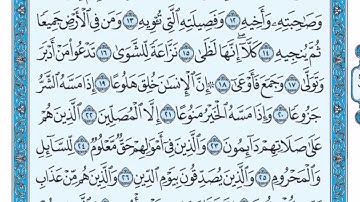 وَصَٰحِبَتِهِۦ وَأَخِيهِ ١٢ وَفَصِيلَتِهِ ٱلَّتِي تُـٔۡوِيهِ ١٣ وَمَن فِي ٱلۡأَرۡضِ جَمِيعٗا
ثُمَّ يُنجِيهِ ١٤ كَلَّآۖ إِنَّهَا لَظَىٰ ١٥ نَزَّاعَةٗ لِّلشَّوَىٰ ١٦ تَدۡعُواْ مَنۡ أَدۡبَرَ
وَتَوَلَّىٰ ١٧ وَجَمَعَ فَأَوۡعَىٰٓ ١٨ ۞ إِنَّ ٱلۡإِنسَٰنَ خُلِقَ هَلُوعًا ١٩ إِذَا مَسَّهُ ٱلشَّرُّ
جَزُوعٗا ٢٠ وَإِذَا مَسَّهُ ٱلۡخَيۡرُ مَنُوعًا ٢١ إِلَّا ٱلۡمُصَلِّينَ ٢٢ ٱلَّذِينَ هُمۡ
عَلَىٰ صَلَاتِهِمۡ دَآئِمُونَ ٢٣ وَٱلَّذِينَ فِيٓ أَمۡوَٰلِهِمۡ حَقّٞ مَّعۡلُومٞ ٢٤ لِّلسَّآئِلِ
وَٱلۡمَحۡرُومِ ٢٥ وَٱلَّذِينَ يُصَدِّقُونَ بِيَوۡمِ ٱلدِّينِ ٢٦ وَٱلَّذِينَ هُم مِّنۡ عَذَابِ